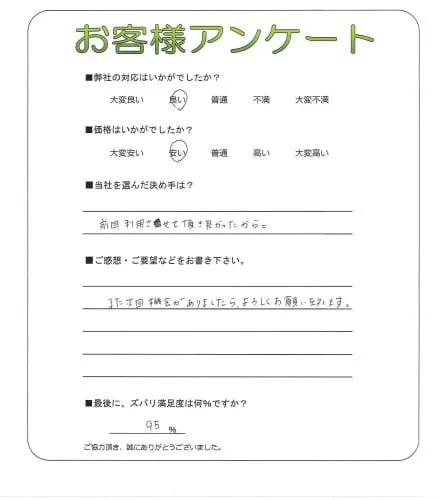 お客様アンケート
■弊社の対応はいかがでしたか?
大変良い 良い 普通 不満 大変不満
■価格はいかがでしたか?
大変安い 安い 普通 高い 大変高い
■当社を選んだ決め手は?
前回利用させて頂き良かったから。
■ご感想・ご要望などをお書き下さい。
また次回機会がありましたら、よろしくお願い致します。
■最後に、ズバリ満足度は何%ですか?
95 %
ご協力頂き、誠にありがとうございました。